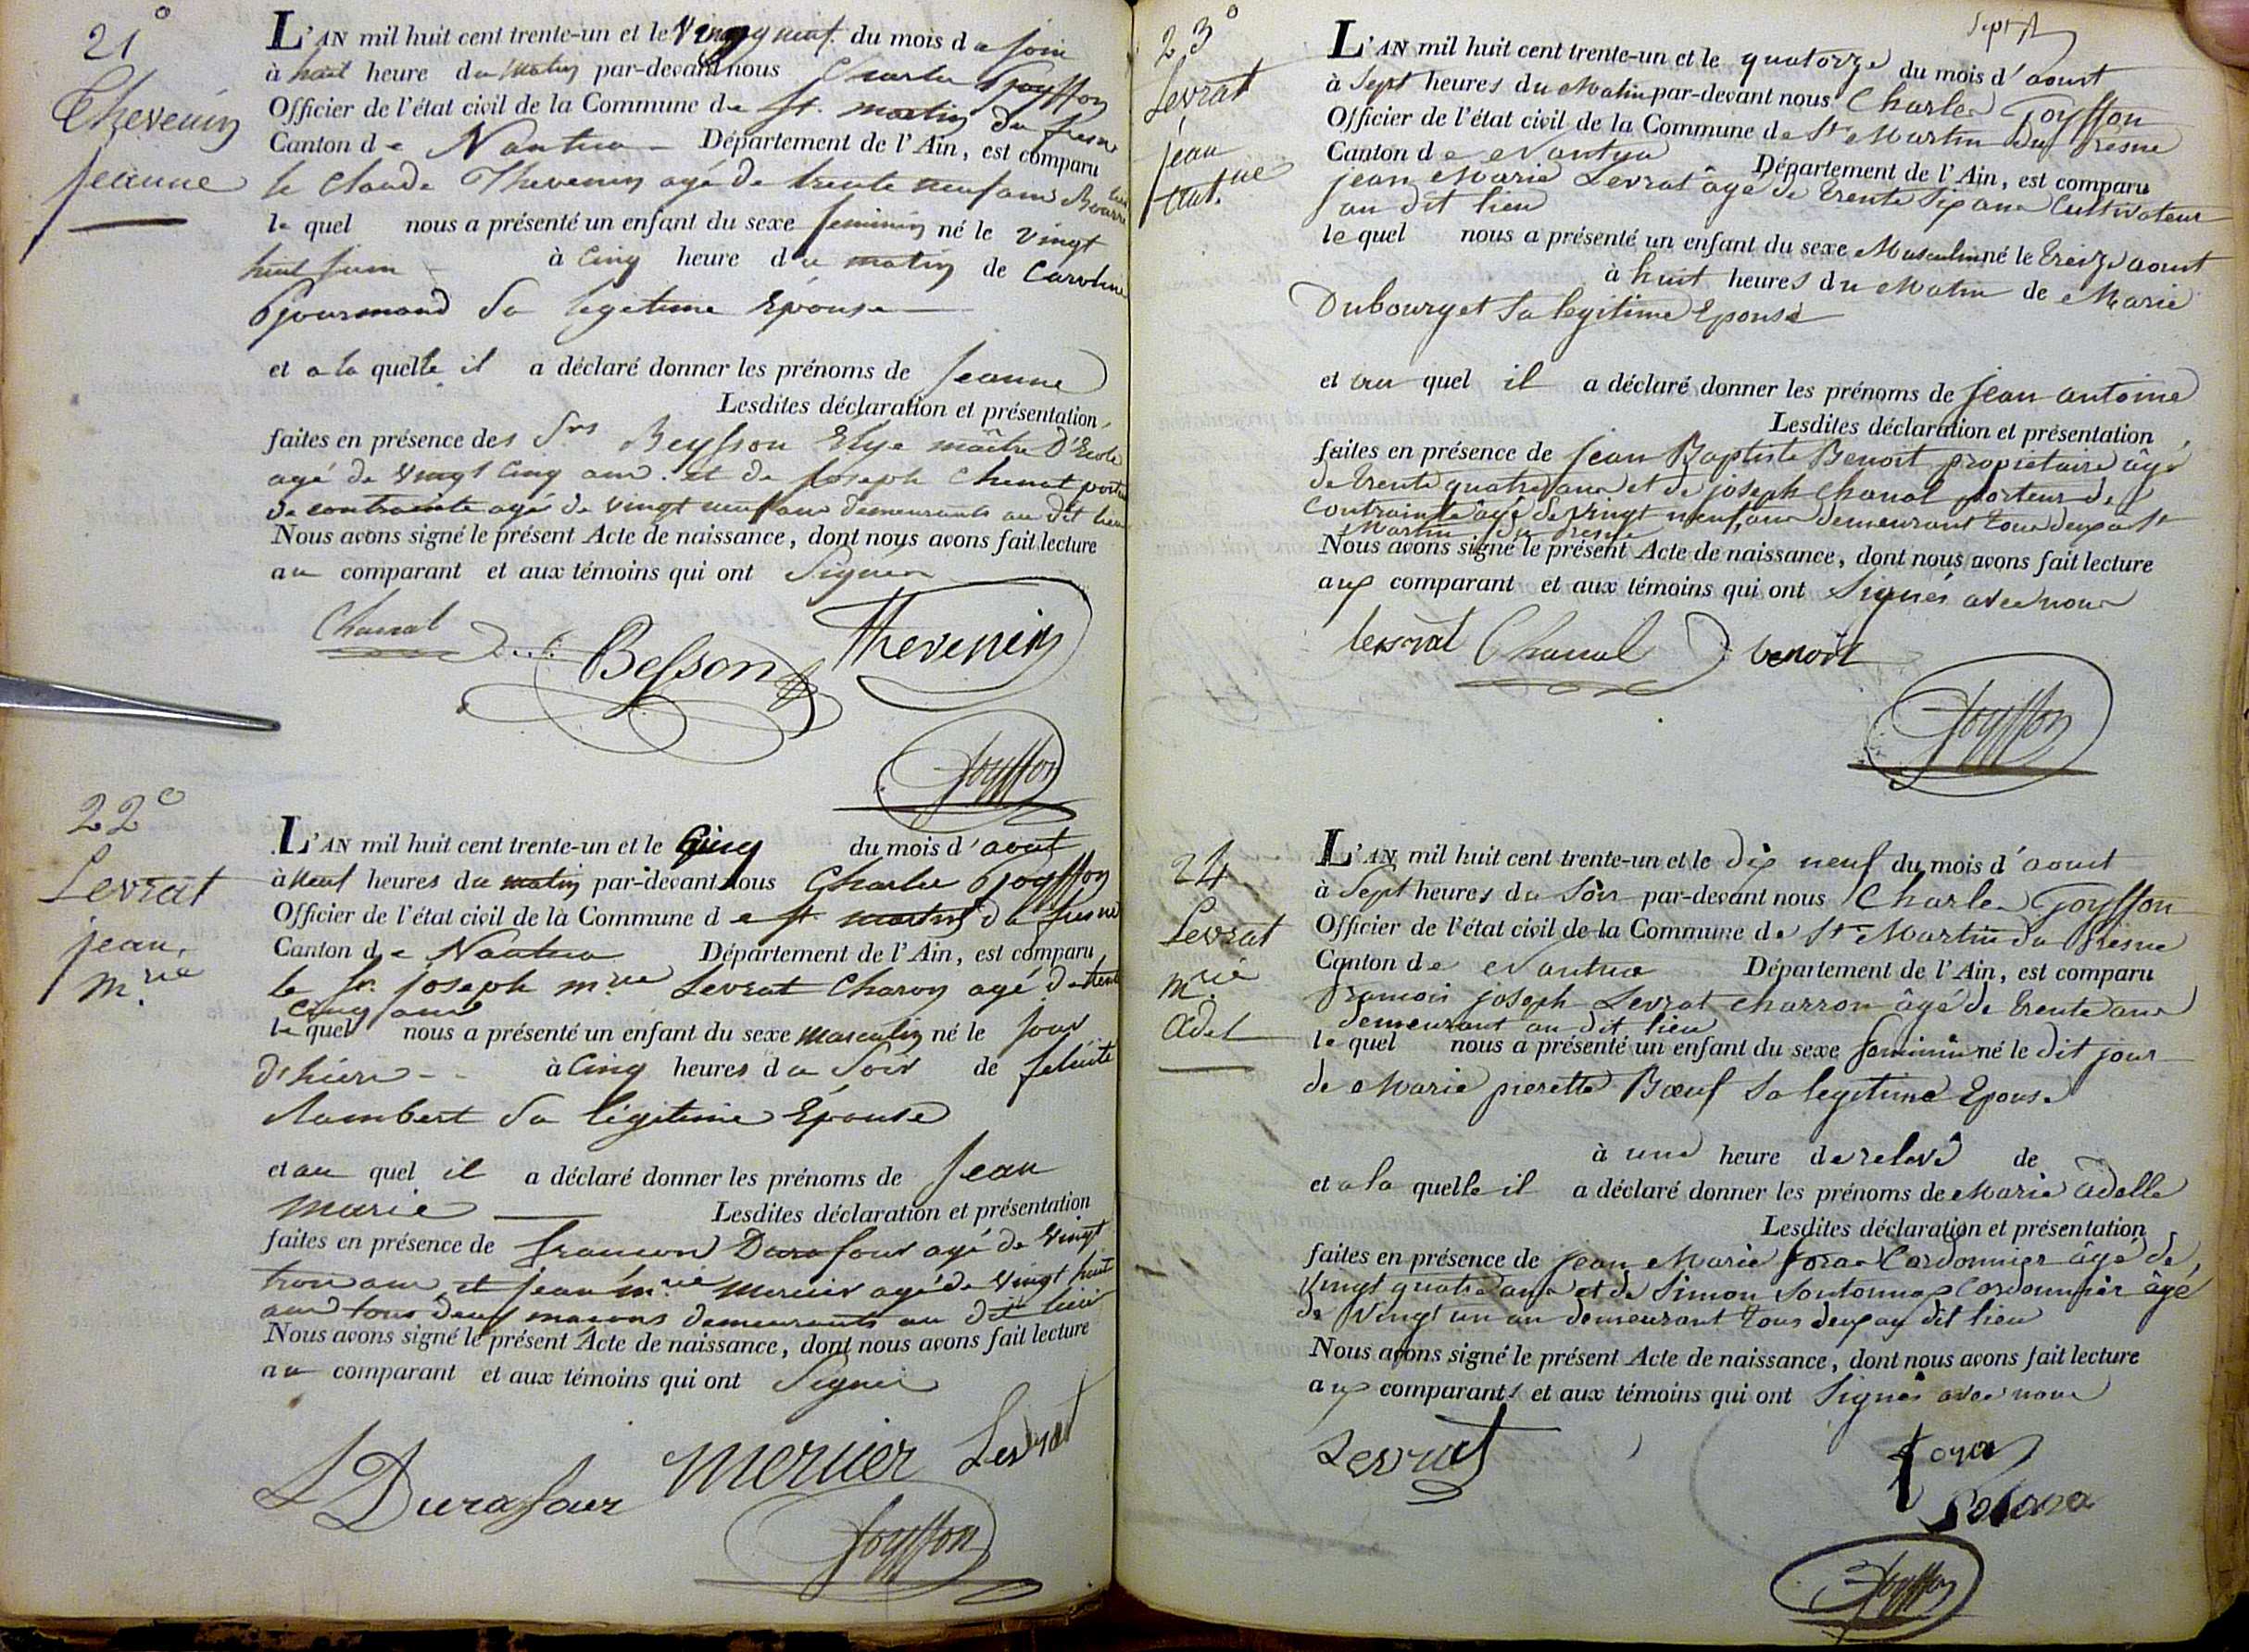 21°
Thevenin
jeanne
L'AN mil huit cent trente-un et le vingt neuf du mois de join
à huit heure du matin par-devant nous Charle Goyffon
Officier de l'état civil de la Commune de St. martin du fresne
Canton de Nantua Département de l'Ain, est comparu
le Claude Thevenin agé de trente neuf ans
le quel nous a présenté un enfant du sexe feminin né le vingt
huit juin à Cinq heure du matin de Caroline
Gourmand Sa legitime Epouse
et a la quelle il a déclaré donner les prénoms de jeanne
Lesdites déclaration et présentation,
faites en présence des Srs Beysson Elye maître D'Ecole
agé de vingt Cinq ans. et de Joseph Chanal porteur
de contrainte agé de vingt neuf ans demeurants au dit lieu
Nous avons signé le présent Acte de naissance, dont nous avons fait lecture
au comparant et aux témoins qui ont Signer
Chanal
Besson
Thevenin
Goyffon
22°
Levrat
jean,
m.rie
L'AN mil huit cent trente-un et le Cinq du mois d'aout
à neuf heures du matin par-devant nous Charle Goyffon
Officier de l'état civil de la Commune de st. martin du fresne
Canton de Nantua Département de l'Ain, est comparu
le Sr. joseph m.rie Levrat Charon agé de trente
Cinq ans
le quel nous a présenté un enfant du sexe masculin né le jour
d'hiere à Cinq heures du Soir de felicite
Lambert Sa légitime Epouse
et au quel il a déclaré donner les prénoms de Jean
Marie Lesdites déclaration et présentation
faites en présence de francois Durafour agé de vingt
trois ans, et jean m.rie mercier agé de vingt huit
ans tous deux macons demeurants au dit lieu
Nous avons signé le présent Acte de naissance, dont nous avons fait lecture
au comparant et aux témoins qui ont Signer
Durafour
Mercier
Levrat
Goyffon
23°
Levrat
jean
ant.ne
L'AN mil huit cent trente-un et le quatorze du mois d'aoust
à Sept heures du Matin par-devant nous Charles Goyffon
Officier de l'état civil de la Commune de St Martin du fresne
Canton de Nantua Département de l'Ain, est comparu
jean Marie Levrat âgé de trente Six ans Cultivateur
au dit lieu
le quel nous a présenté un enfant du sexe Masculin né le treize aoust
à huit heures du Matin de Marie
Dubourget Sa legitime Epouse
et au quel il a déclaré donner les prénoms de jean antoine
Lesdites déclaration et présentation,
faites en présence de jean Baptiste Benoit propietaire âgé
de trente quatre ans et de joseph Chanal porteur de
Contrainte âgé de vingt neuf ans demeurant tous deux a St
Martin du fresne
Nous avons signé le présent Acte de naissance, dont nous avons fait lecture
aux comparant et aux témoins qui ont Signés avec nous
levrat
Chanal
benoit
Goyffon
24
Levrat
m.rie
adel
L'AN mil huit cent trente-un et le dix neuf du mois d'aoust
à Sept heures du Soir par-devant nous Charles Goyffon
Officier de l'état civil de la Commune de St Martin du fresne
Canton de Nantua Département de l'Ain, est comparu
francois joseph Levrat charron âgé de trente ans
demeurant au dit lieu
le quel nous a présenté un enfant du sexe feminin né le dit jour
de Marie pierette Bœuf Sa legitime Epouse
à une heure de relevê de
et a la quelle il a déclaré donner les prénoms de Marie adelle
Lesdites déclaration et présentation
faites en présence de jean Marie Cordonnier âgé de,
vingt quatre ans et de Simon Cordonnier âgé
de Vingt un an demeurant tous deux au dit lieu
Nous avons signé le présent Acte de naissance, dont nous avons fait lecture
aux comparants et aux témoins qui ont Signés avec nous
Levrat
Goyffon